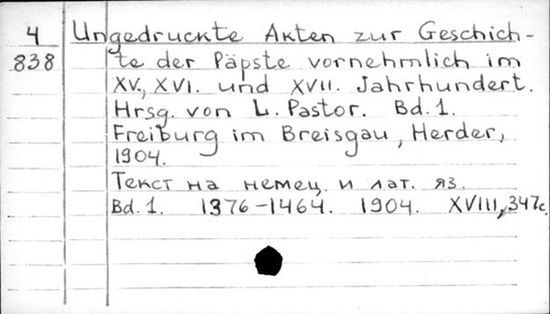 4 Ungedruckte Akten zur Geschich-
838 te der Päpste vornehmlich im
XV., XVI. und XVII. Jahrhundert.
Hrsg. von L. Pastor. Bd. 1.
Freiburg im Breisgau, Herder,
1904.
Текст на немец. и лат. яз.
Bd. 1. 1376-1464. 1904. XVIII, 347с.